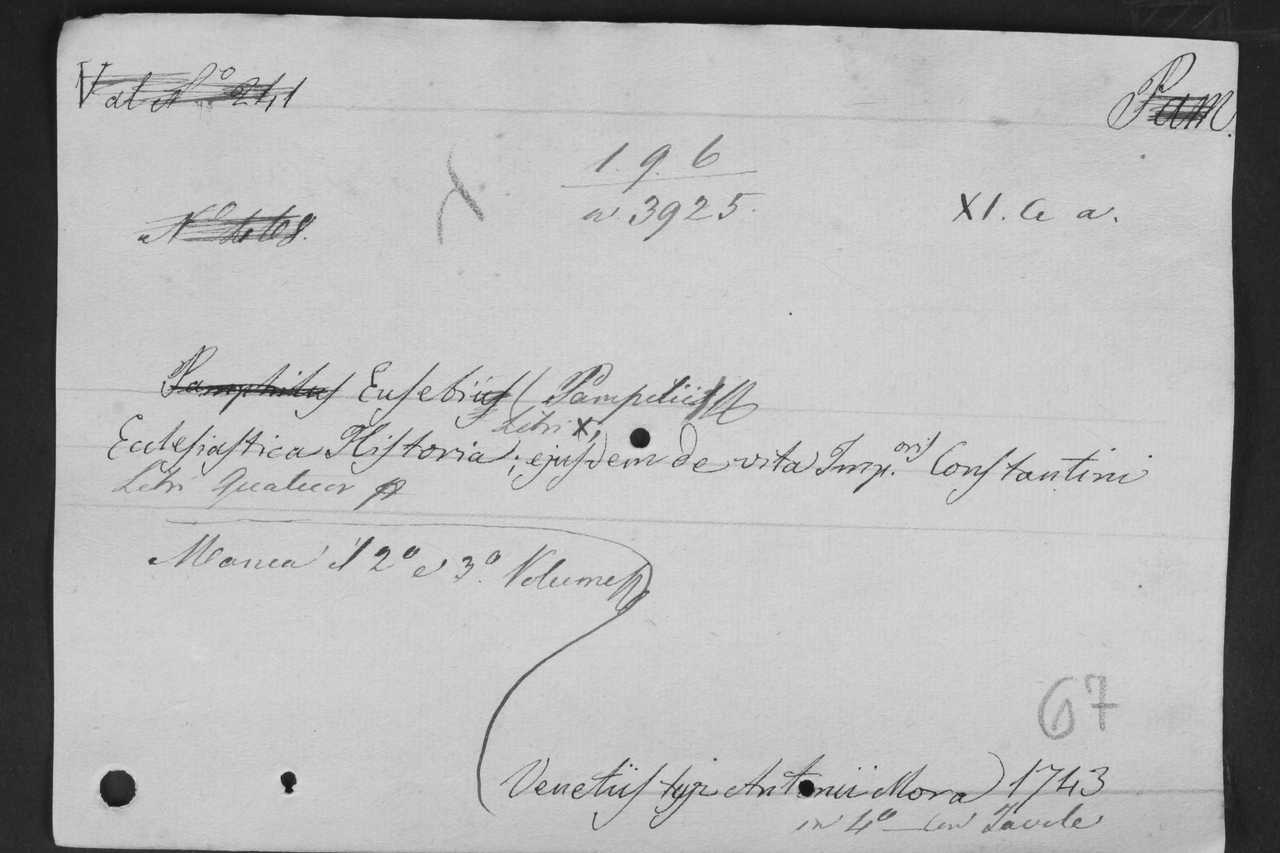 Val N.º 241
Pam.
1. 9. 6
a. 3925.
XI. C a.
N.º 408.
Pamphilus Eusebius (Pampilii)
Libri X,
Ecclesiastica Historia; ejusdem de vita Imp.oris Constantini
Libri Quatuor
Manca il 2º e 3º Volume
67
Venetiis typ. Antonii Mora 1743
in 4º con Tavole